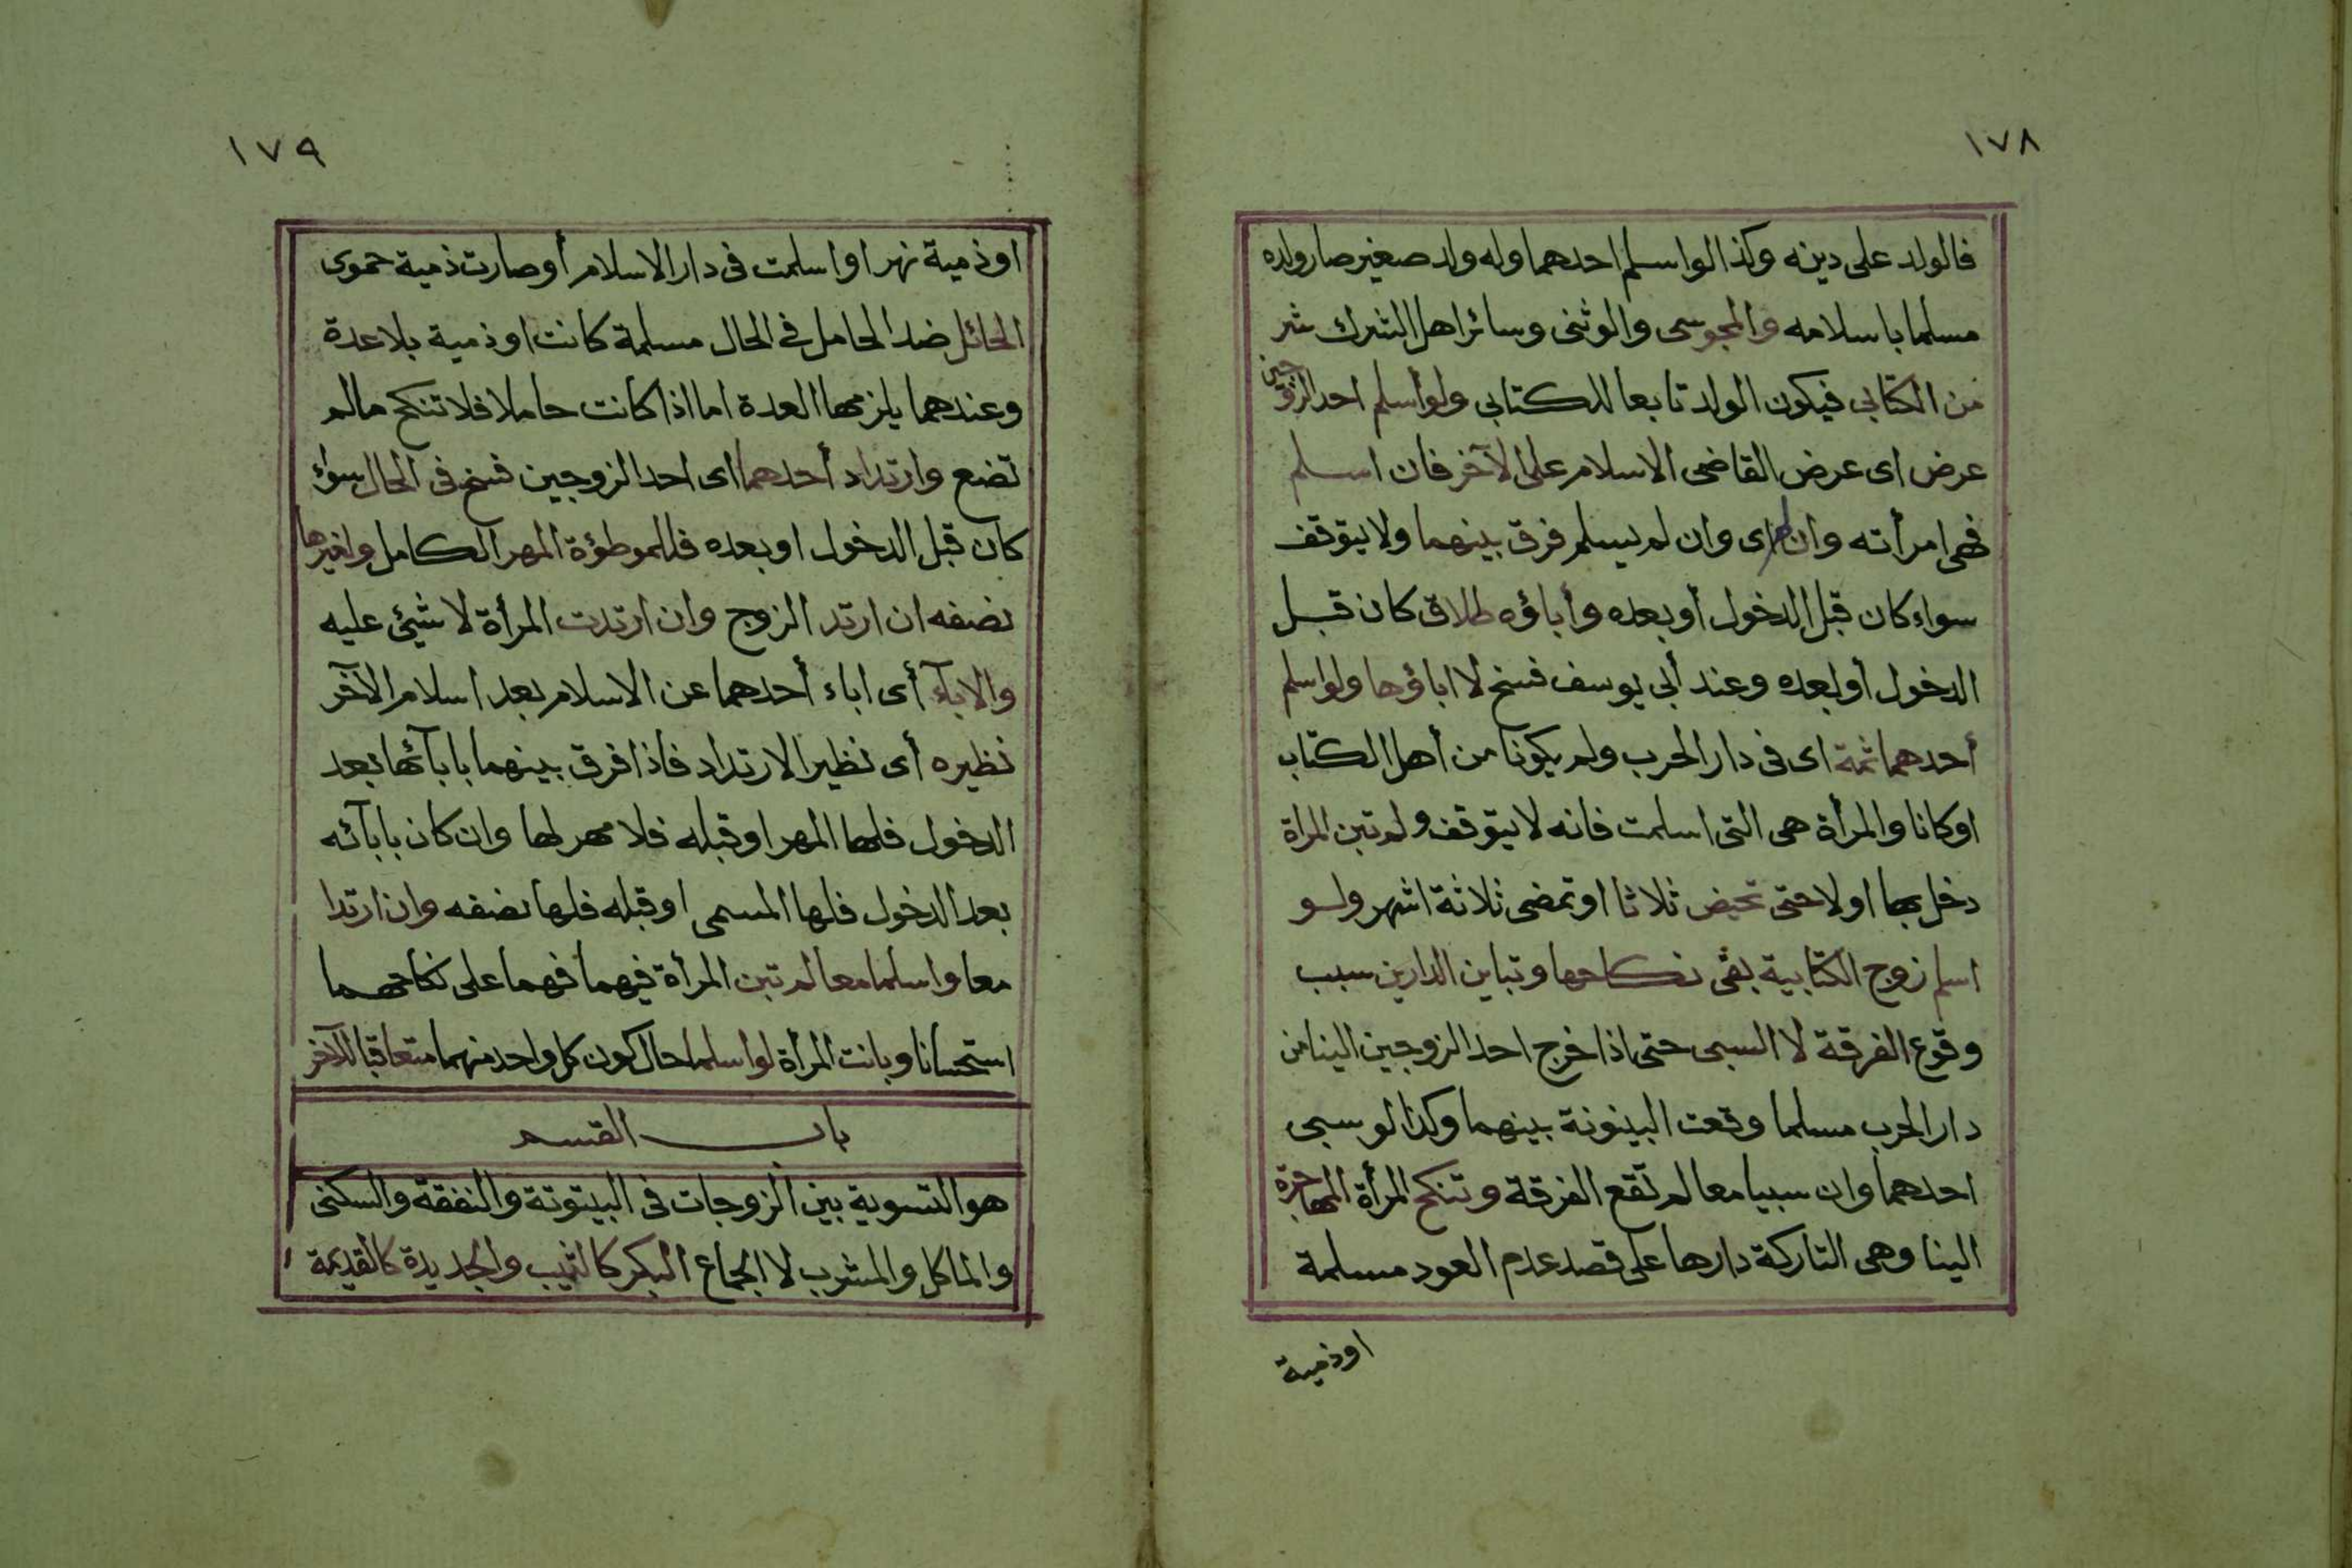 ١٧٨
فالولد على دينه وكذا لو اسلم احدهما وله ولد صغير صار ولده
مسلما باسلامه والمجوسى والوثنى وسائر اهل الشرك شر
من الكتابى فيكون الولد تابعا للكتابى ولو أسلم احد الزوجين
عرض اى عرض القاضى الاسلام على الآخر فان اسلم
فهى امرأته وان لم اى وان لم يسلم فرق بينهما ولا يتوقف
سواء كان قبل الدخول أو بعده وأباؤه طلاق كان قبل
الدخول أو بعده وعند أبى يوسف فسخ لا اباؤها ولو اسلم
أحدهما ثمة اى فى دار الحرب ولم يكونا من أهل الكتاب
او كانا والمرأة هى التى اسلمت فانه لا يتوقف ولم تبن المراة
دخل بها اولا حتى تحيض ثلاثا او تمضى ثلاثة اشهر ولو
اسلم زوج الكتابية بقى نكاحها وتباين الدارين سبب
وقوع الفرقة لا السبى حتى اذا خرج احد الزوجين الينا من
دار الحرب مسلما وقعت البينونة بينهما وكذا لو سبى
احدهما وان سبيا معا لم تقع الفرقة وتنكح المرأة المهاجرة
الينا وهى التاركة دارها على قصد عدم العود مسلمة
او ذمية
١٧٩
او ذمية نهر او اسلمت فى دار الاسلام أو صارت ذمية حموى
الحائل ضد الحامل فى الحال مسلمة كانت او ذمية بلا عدة
وعندهما يلزمها العدة اما اذا كانت حاملا فلا تنكح مالم
تضع وارتداد أحدهما اى احد الزوجين فسخ فى الحال سواء
كان قبل الدخول او بعده فللموطؤة المهر الكامل ولغيرها
نصفه ان ارتد الزوج وان ارتدت المرأة لا شيئ عليه
والابآء أى اباء أحدهما عن الاسلام بعد اسلام الآخر
نظيره أى نظير الارتداد فاذا فرق بينهما بابآئها بعد
الدخول فلها المهر او قبله فلا مهر لها وان كان بابآئه
بعد الدخول فلها المسمى او قبله فلها نصفه وان ارتدا
معا واسلما معا لم تبن المرأة فيهما فهما على نكاحهما
استحسانا وبانت المرأة لو اسلما حال كون كل واحد منهما متعاقبا للآخر
باب القسم
هو التسوية بين الزوجات فى البيتوتة والنفقة والسكنى
والماكل والمشرب لا الجماع البكر كالثيب والجديدة كالقديمة